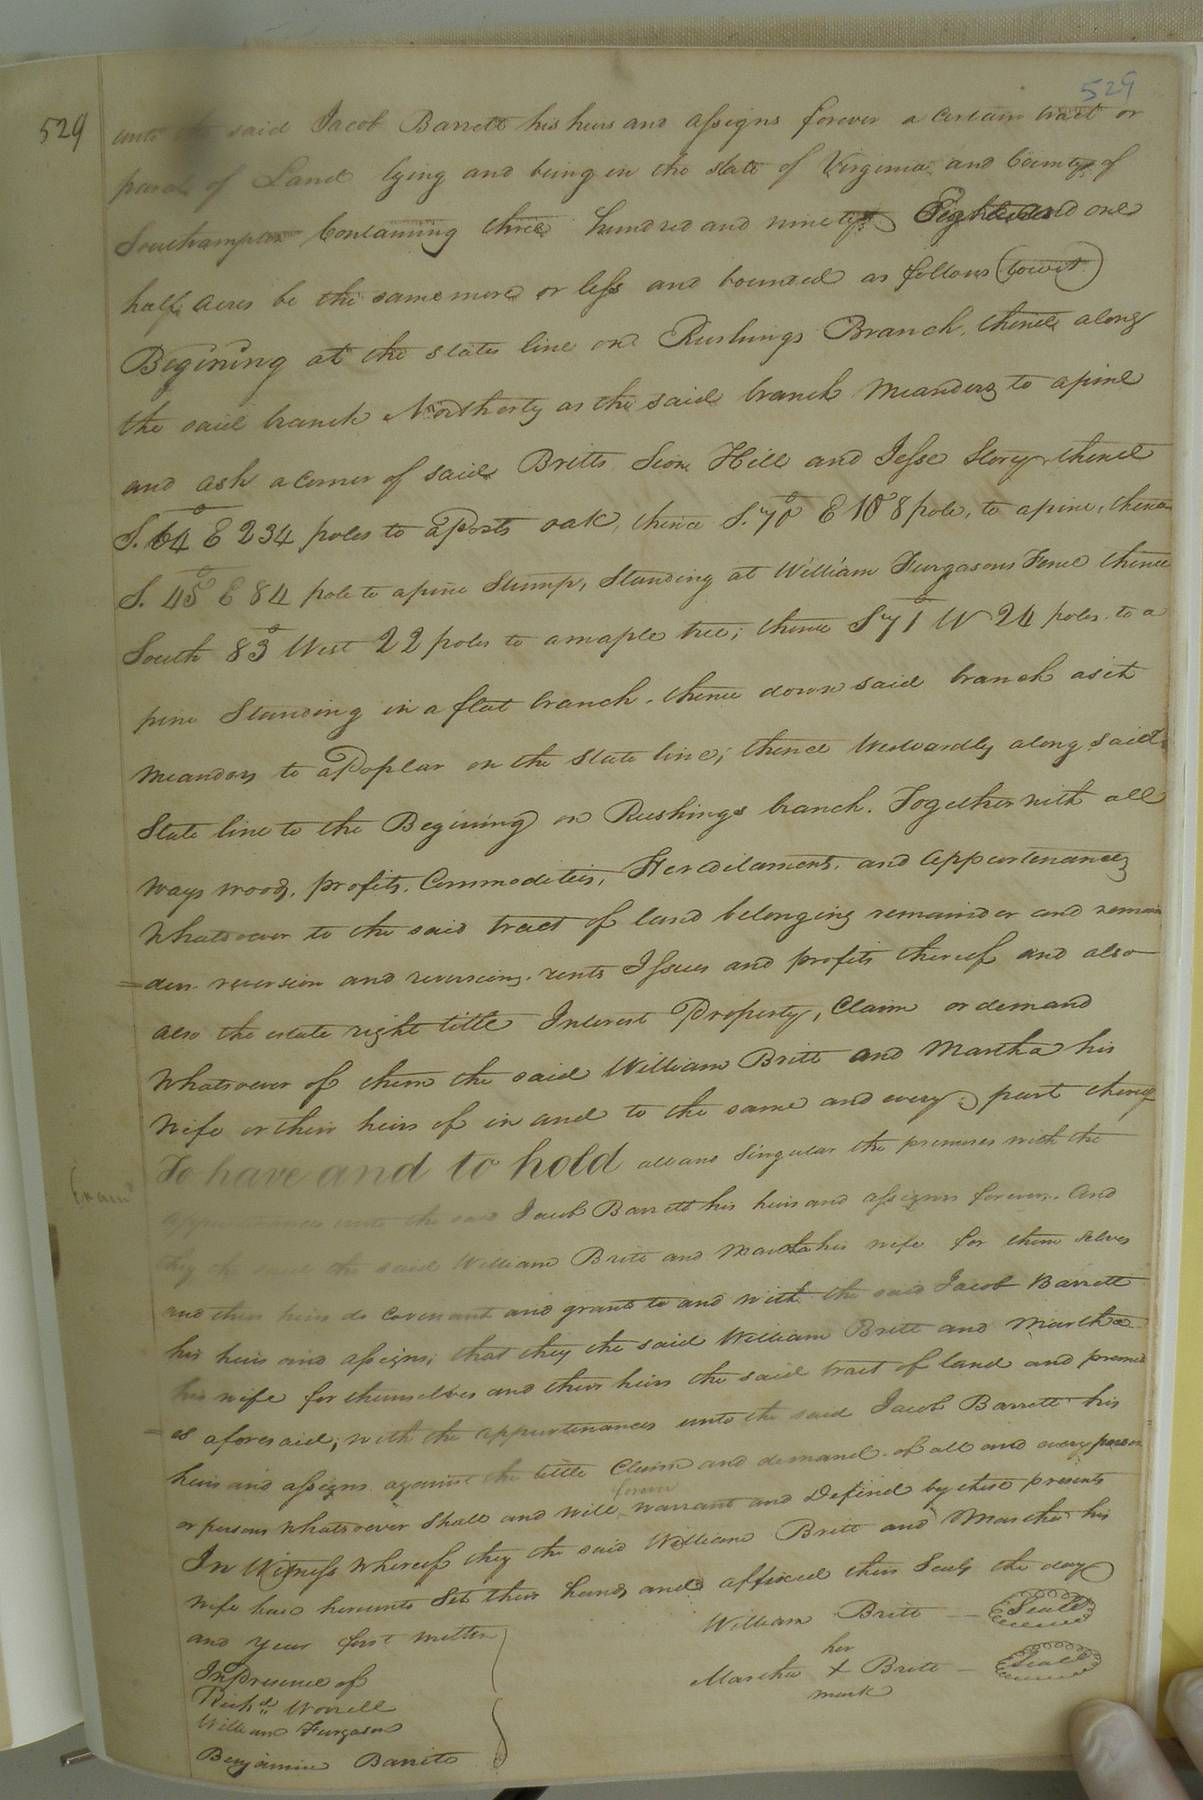 529
529
unto the said Jacob Barrett his heirs and assigns forever a certain tract or
parcel of Land lying and being in the state of Virginia and County of
Southampton Containing three hundred and ninety Eight and one
half Acres be the same more or less and bounded as follows (towit)
Begining at the states line on Rushings Branch, thence along
the said branch Northerly as the said branch Meanders to a pine
and ash a corner of said Britts Sion Hill and Jesse Storey thence
S. 64° E 234 poles to a Posts oak, thence S. 70° E 108 pole, to a pine, thence
S. 45° E 84 pole to a pine Stump, Standing at William Furgasons Fence thence
South 83° West 22 poles to a maple tree; thence S 71° W 24 poles to a
pine Standing in a flat branch. thence down said branch as it
meanders to a Poplar on the State line; thence Westwardly along said
State line to the Begining on Rushings branch. Together with all
ways woods, profits, Commodities, Heredilaments, and Appurtenances
Whatsoever to the said tract of land belonging remainder and remain
=ders reversion and reversions. rents Issues and profits thereof and also
also the estate right title Interest Property, Claim or demand
Whatsoever of them the said William Britt and Martha his
Wife or their heirs of in and to the same and every part thereof
To have and to hold all and Singular the premises with the
Exam^d
appurtenances unto the said Jacob Barrett his heirs and assigns forever. And
they the said the said William Britt and Martha his wife for them selves
and their heirs do covenant and grants to and with the said Jacob Barrett
his heirs and assigns; that they the said William Britt and Martha
his wife for themselves and their heirs the said tract of land and premis
=es aforesaid; with the appurtenances unto the said Jacob Barrett his
heirs and assigns against the title Claim and demand of all and every person
forever
or persons whatsoever Shall and will, warrant and Defend by these presents
In Witness Whereof they the said William Britt and Martha his
Wife have hereunto Set their hands and affixed their Seals the day
and year first written
William Britt — Seall
In Presence of
her
Martha X Britt — Seall
mark
Rich^d Worrell
William Furgason
Benjamin Barrett